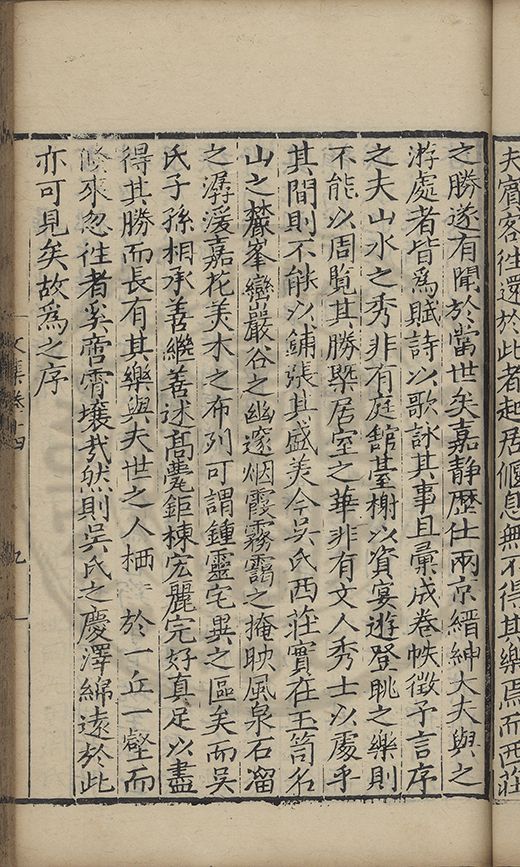 夫賓客往還於此者起居偃息無不得其樂焉而西莊
之勝遂有聞於當世矣嘉靜歷仕兩京縉紳大夫與之
游處者皆為賦詩以歌詠其事且彙成卷帙徵予言序
之夫山水之秀非有庭舘臺榭以資宴遊登眺之樂則
不能以周覧其勝槩居室之華非有文人秀士以處乎
其間則不能以鋪張其盛美今吳氏西莊實在玉笥名
山之麓峯巒嚴谷之幽邃烟霞霧靄之掩映風泉石溜
之潺湲嘉花美木之布列可謂鍾靈宅異之區矣而吳
氏子孫相承善繼善述髙甍鉅棟宏麗完好真足以盡
得其勝而長有其樂與夫世之人栖 於一丘一壑而
倏來忽往者奚啻霄壤㢤然則吳氏之慶澤綿遠於此
亦可見矣故為之序
文集卷十四 九